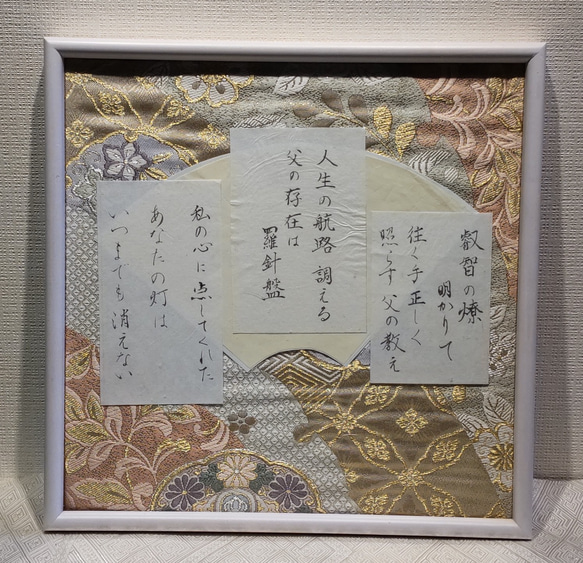 叡智の燎
明かりて
往く手正しく
照らす 父の教え
人生の航路 調える
父の存在は
羅針盤
私の心に点してくれた
あなたの灯は
いつまでも消えない